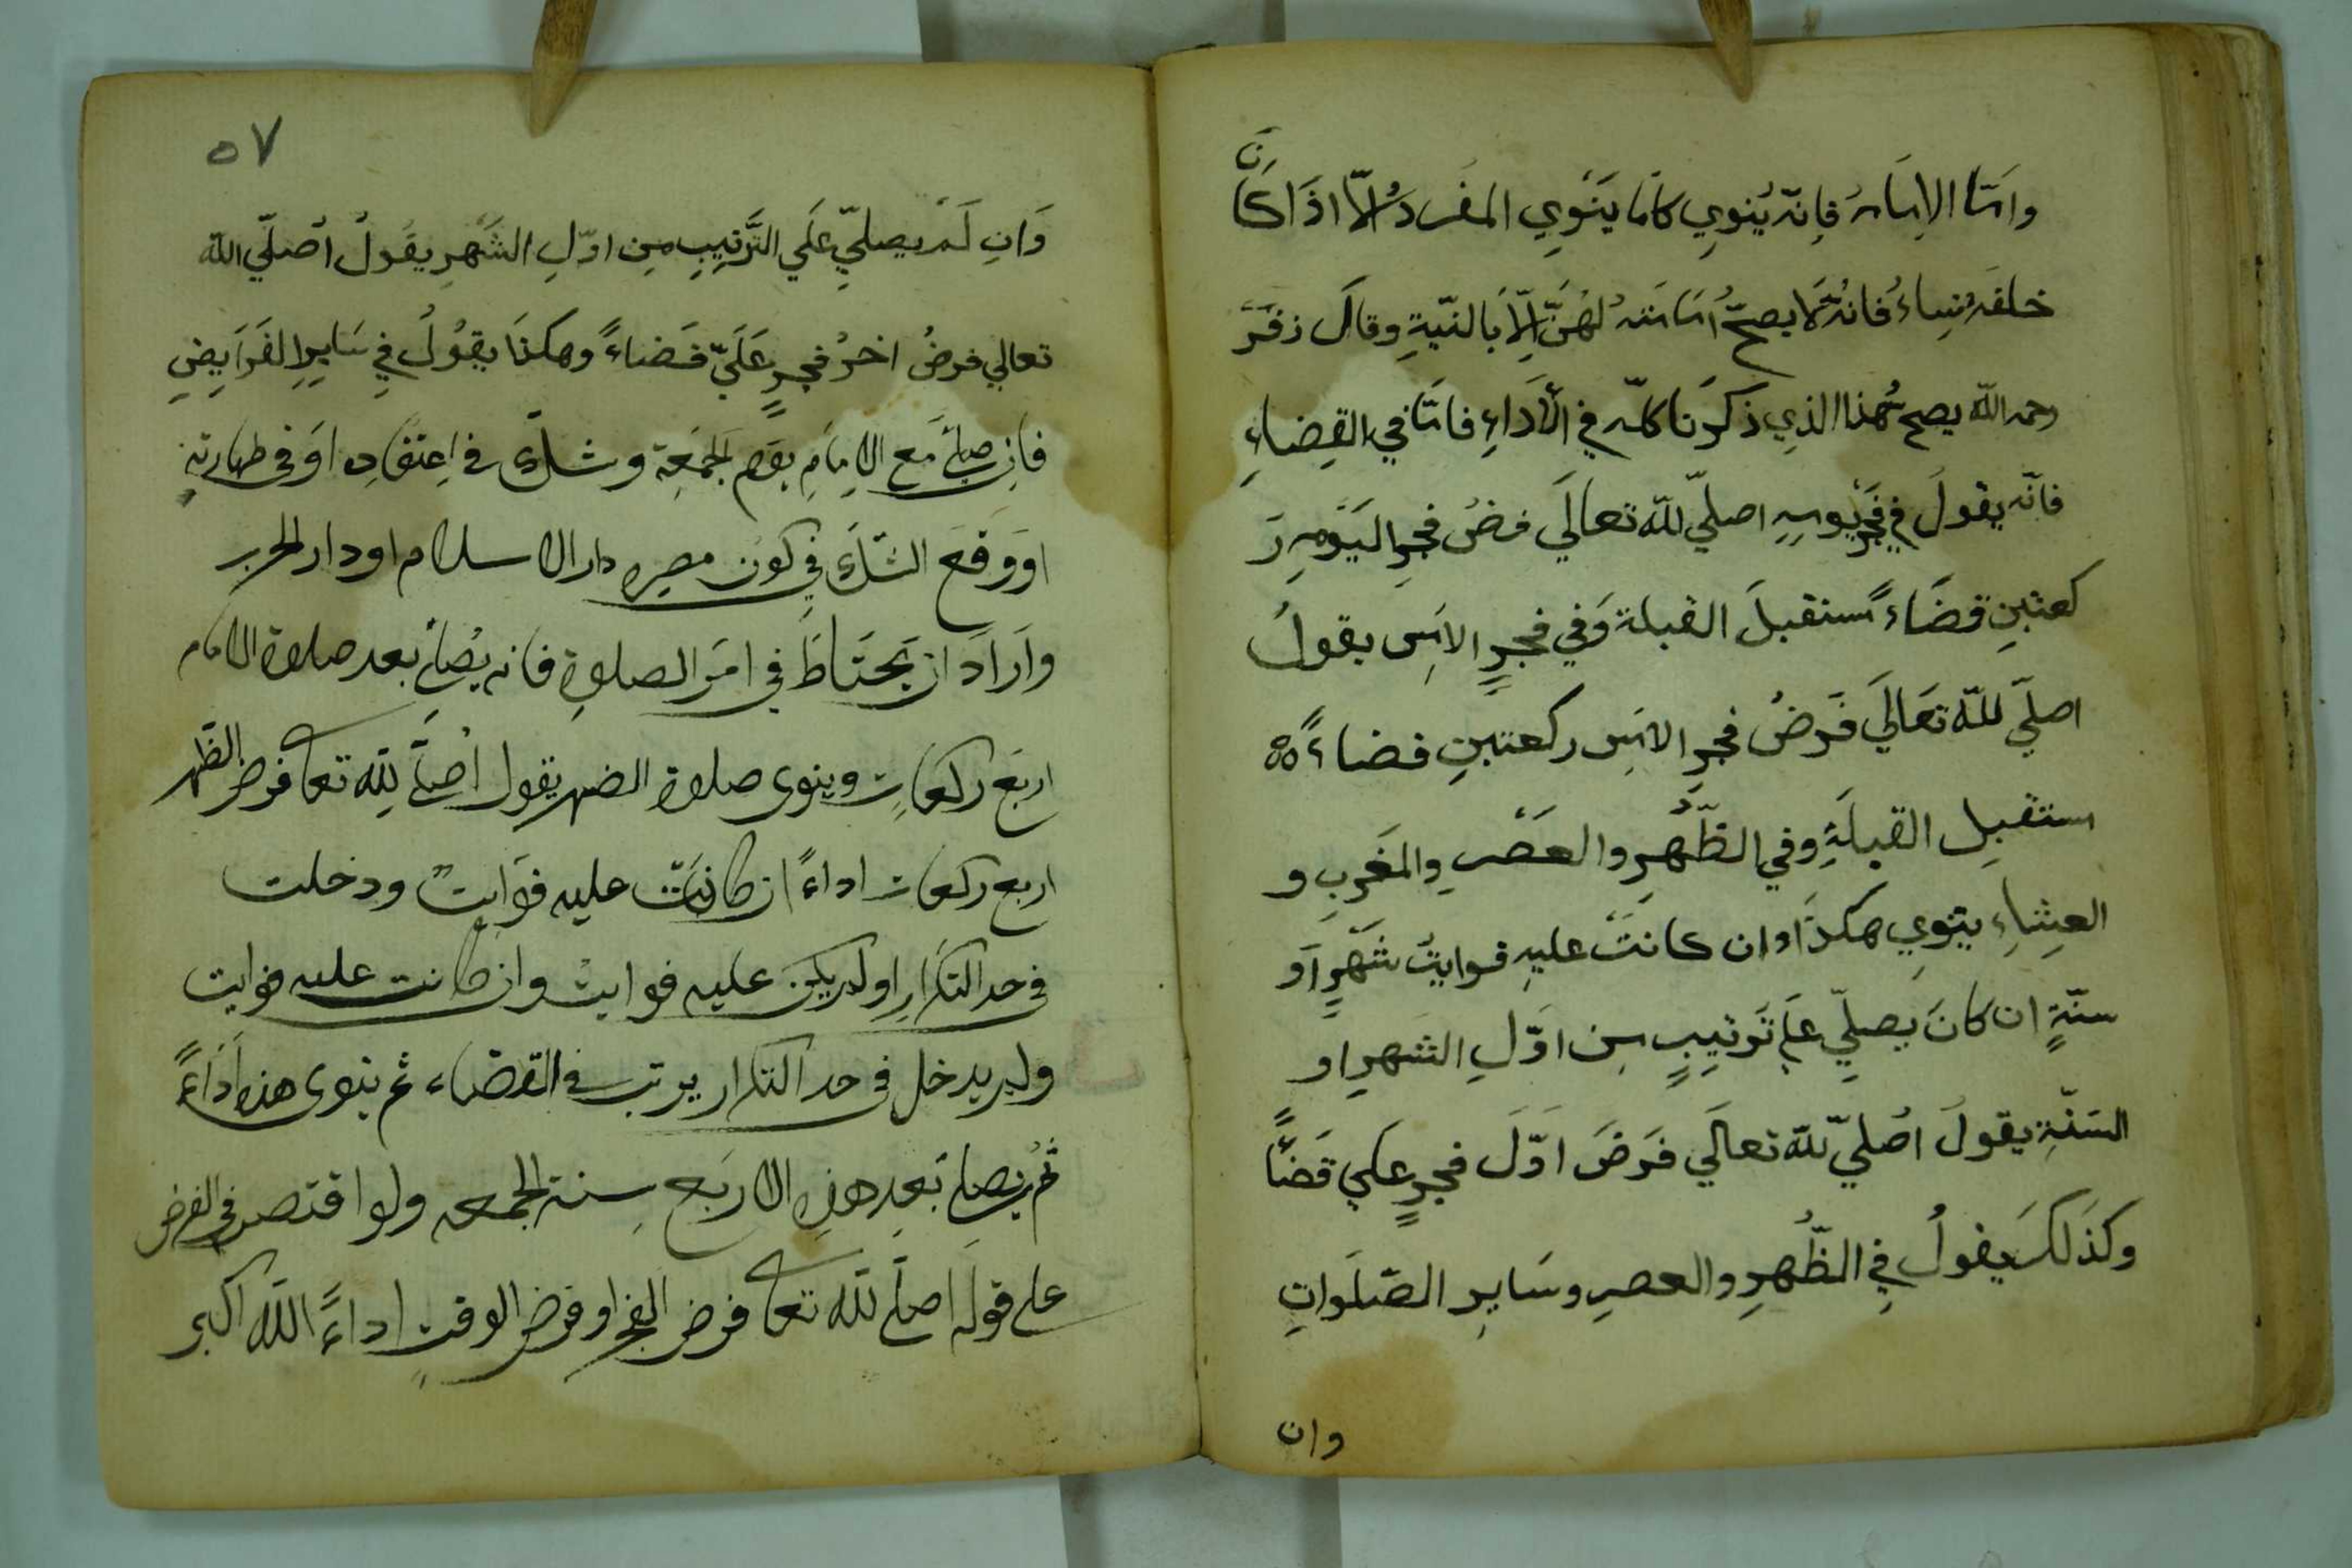 واما الامام فانه ينوي كما ينوي المفرد الا اذا كان
خلفه نساء فانه لا يصح امامته لهن الا بالنية وقال زفر
رحمه الله يصح هذا الذي ذكرنا كله في الاداء فاما في القضاء
فانه يقول في فجر يومه اصلي لله تعالى فرض فجر اليوم ر
كعتين قضاء مستقبل القبلة وفي فجر الامس يقول
اصلي لله تعالي فرض فجر الامس ركعتين قضاء
مستقبل القبلة وفي الظهر والعصر والمغرب و
العشاء ينوي هكذا وان كانت عليه فوايت شهر او
سنة ان كان يصلي على ترتيب من اول الشهر او
السنة يقول اصلي لله تعالي فرض اول فجر علي قضا
وكذلك يقول في الظهر والعصر وساير الصلوات
وان
٥٧
وان لم يصلي علي الترتيب من اول الشهر يقول اصلي الله
تعالي فرض اخر فجر علي قضاء وهكذا يقول في ساير الفرايض
فان صلى مع الامام يوم الجمعة وشك في اعتقاده او في طهارته
او وقع الشك في كون مصره دار الاسلام او دار الحرب
واراد ان يحتاط في امر الصلوة فانه يصلي بعد صلاة الامام
اربع ركعات وينوى صلاة الضهر يقول اصلي لله تعا فرض الظهر
اربع ركعات اداء ان كانت عليه فوايت ودخلت
في حد التكرار او لم يكن عليه فوايت وان كانت عليه فوايت
ولم يدخل في حد التكرار يرتب في القضاء ثم ينوى هذه اداء
ثم يصلي بعد هذه الاربع سنة الجمعه ولو اقتصر في الفرض
على قوله اصلي لله تعا فرض الفجر او فرض الوقت اداء الله اكبر